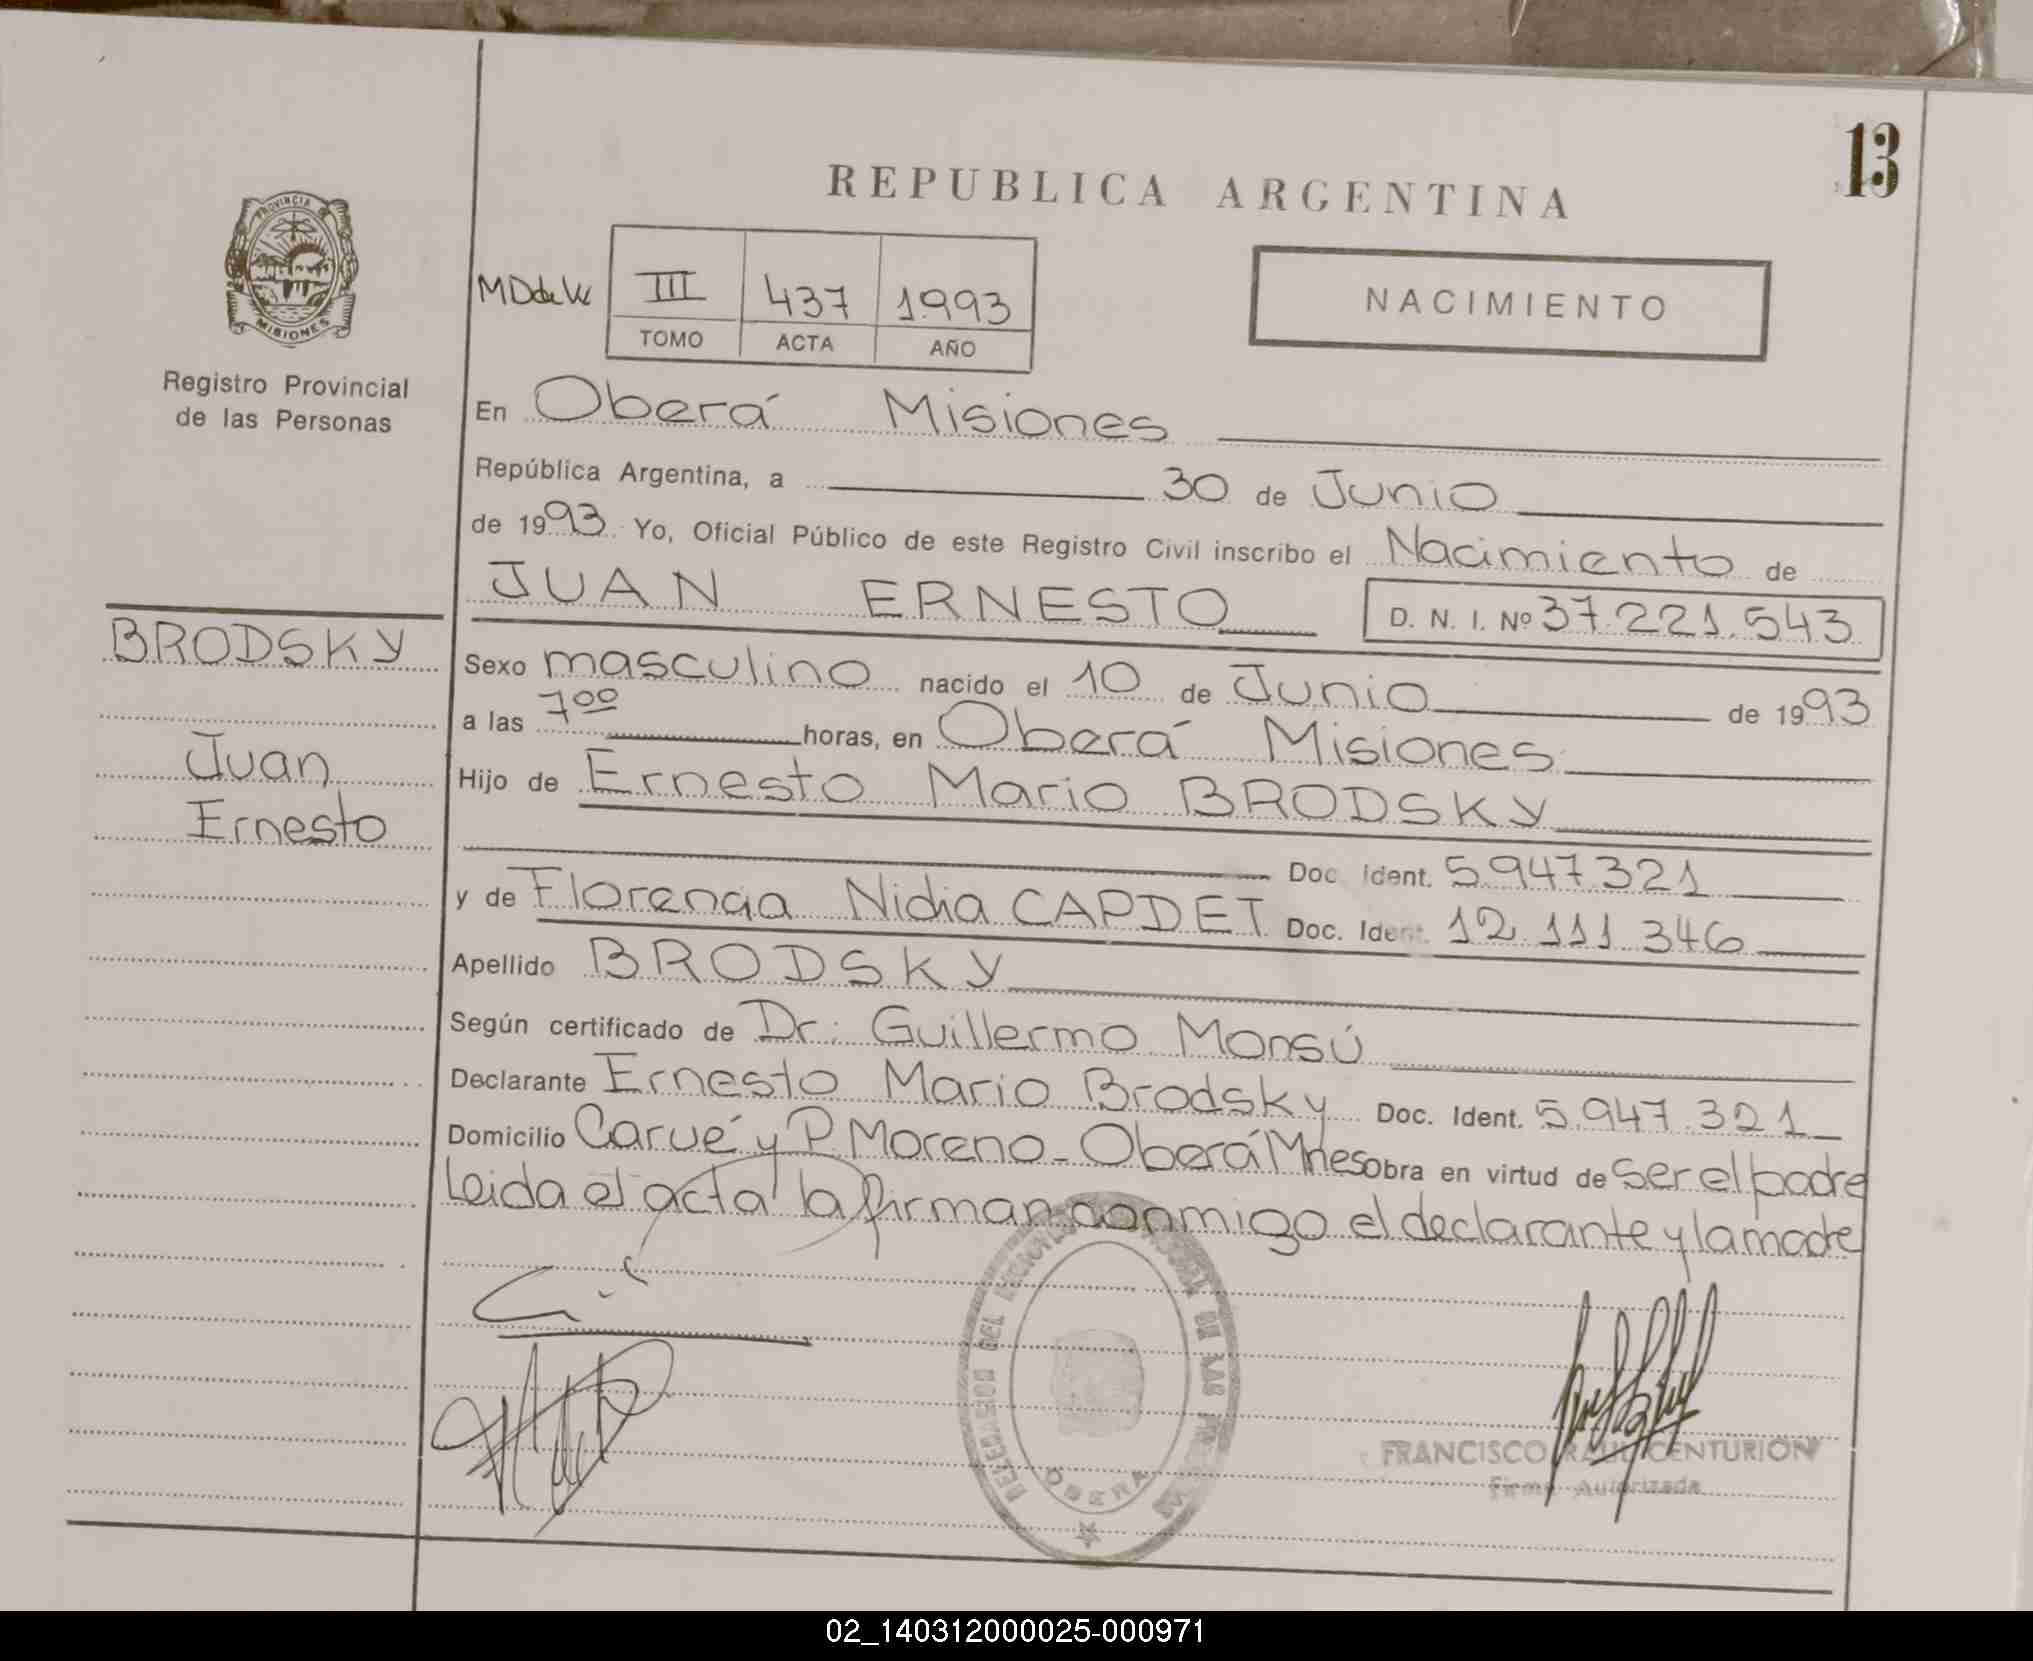 13
REPUBLICA ARGENTINA
PROVINCIA
MISIONES
Registro Provincial
de las Personas
III 437 1993
TOMO ACTA AÑO
NACIMIENTO
En Oberá Misiones
República Argentina, a 30 de Junio
de 1993 Yo, Oficial Público de este Registro Civil inscribo el Nacimiento de
JUAN ERNESTO D. N. I. Nº 37.221.543
BRODSKY
Juan
Ernesto
Sexo masculino nacido el 10 de Junio de 1993
a las 7⁰⁰ horas, en Oberá Misiones
Hijo de Ernesto Mario BRODSKY
Doc. Ident. 5.947.321
y de Florencia Nidia CAPDET Doc. Ident. 12.111.346
Apellido BRODSKY
Según certificado de Dr: Guillermo Monsú
Declarante Ernesto Mario Brodsky Doc. Ident. 5.947.321
Domicilio Carué y P. Moreno - Oberá Mnes obra en virtud de ser el padre
Leida el acta la firman conmigo el declarante y la madre
DEL DE LAS
OBERA
FRANCISCO RAUL CENTURION
Firma Autorizada
02_140312000025-000971